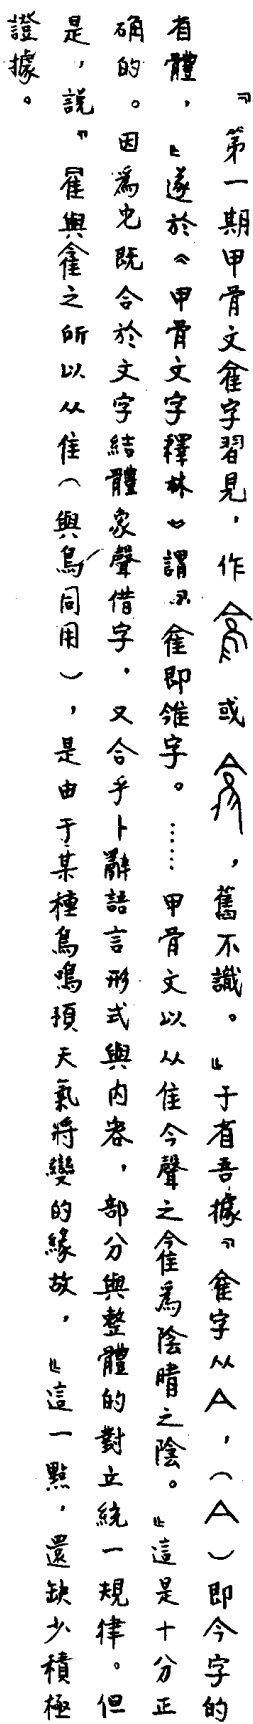 『第一期甲骨文隺字習見，作或，舊不識。』于省吾據『隺字从A，（A）即今字的
省體，』遂於《甲骨文字釋林》謂『隺即雂字。……甲骨文以从隹今聲之雂爲陰晴之陰。』這是十分正
确的。因爲它既合於文字結體象聲借字，又合乎卜辭語言形式與内容，部分與整體的對立統一規律。但
是，説『與之所以从隹（與鳥同用），是由于某種鳥鳴預天氣將變的緣故，』這一點，還缺少積極
證據。